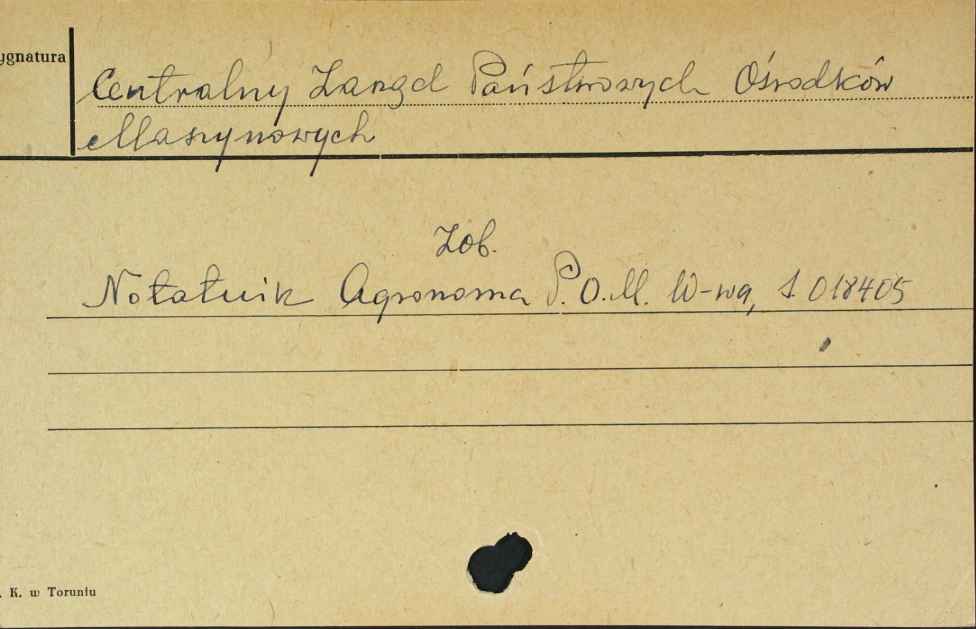 ygnatura
Centralny Zarząd Państwowych Ośrodków
Maszynowych
Zob.
Notatnik Agronoma P.O.M. W-wa, S. 018405
. K. w Toruniu